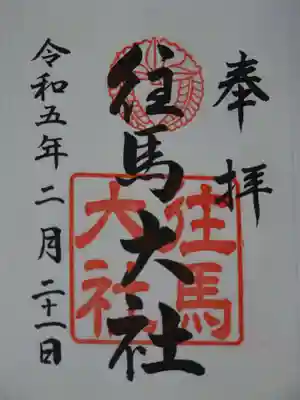 奉拝
往馬大社
往馬大社
令和五年二月二十一日